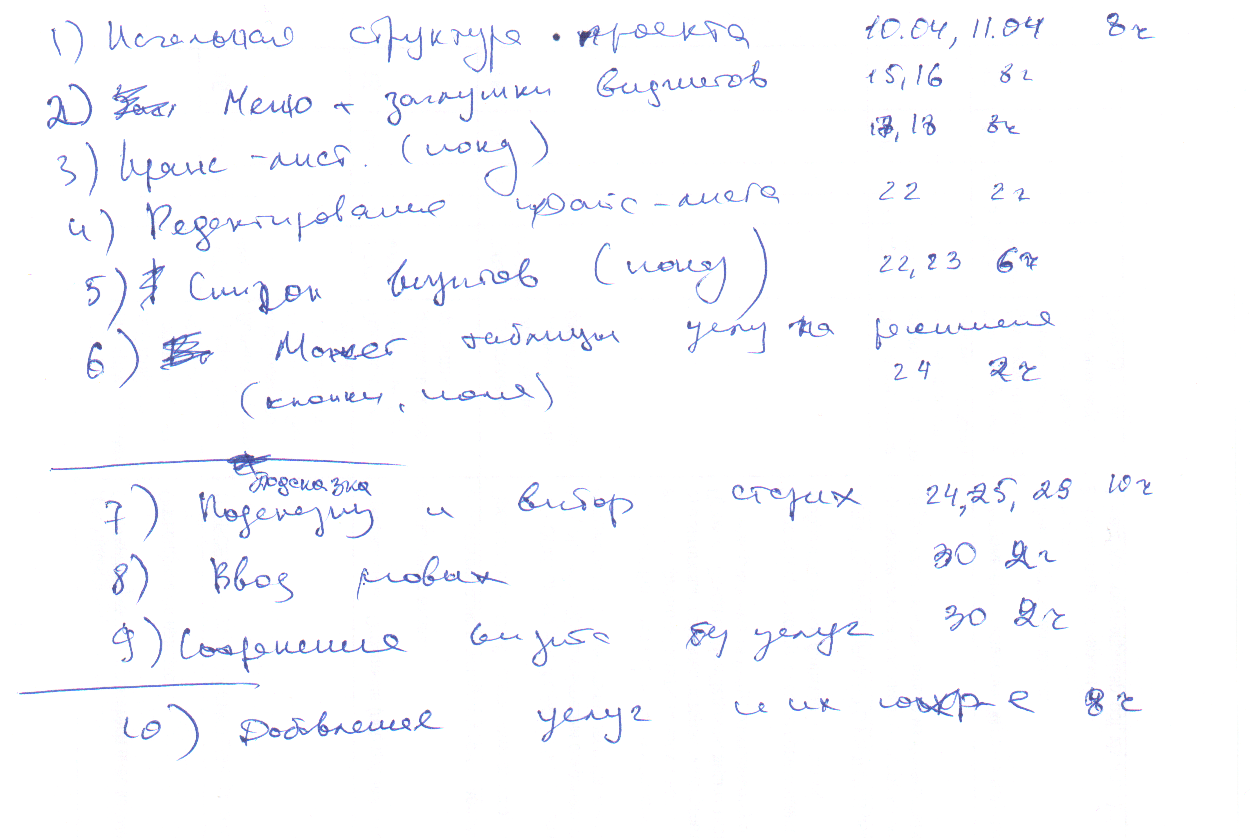 1) Начальная структура проекта 10.04, 11.04 8ч
2) Меню + заглушки виджетов 15, 16 8ч
3) Прайс-лист. (показ) 8ч
4) Редактирование прайс-листа 22 2ч
5) Список визитов (показ) 22, 23 6ч
6) Макет таблицы услуг на
24 2ч
(кнопки, поля)
Подсказка
7) Подсказку и выбор старых 24, 25, 29 10ч
8) Ввод новых 30 2ч
9) Сохранение визита без услуг 30 2ч
10) Добавление услуг и их сохр-е 8ч